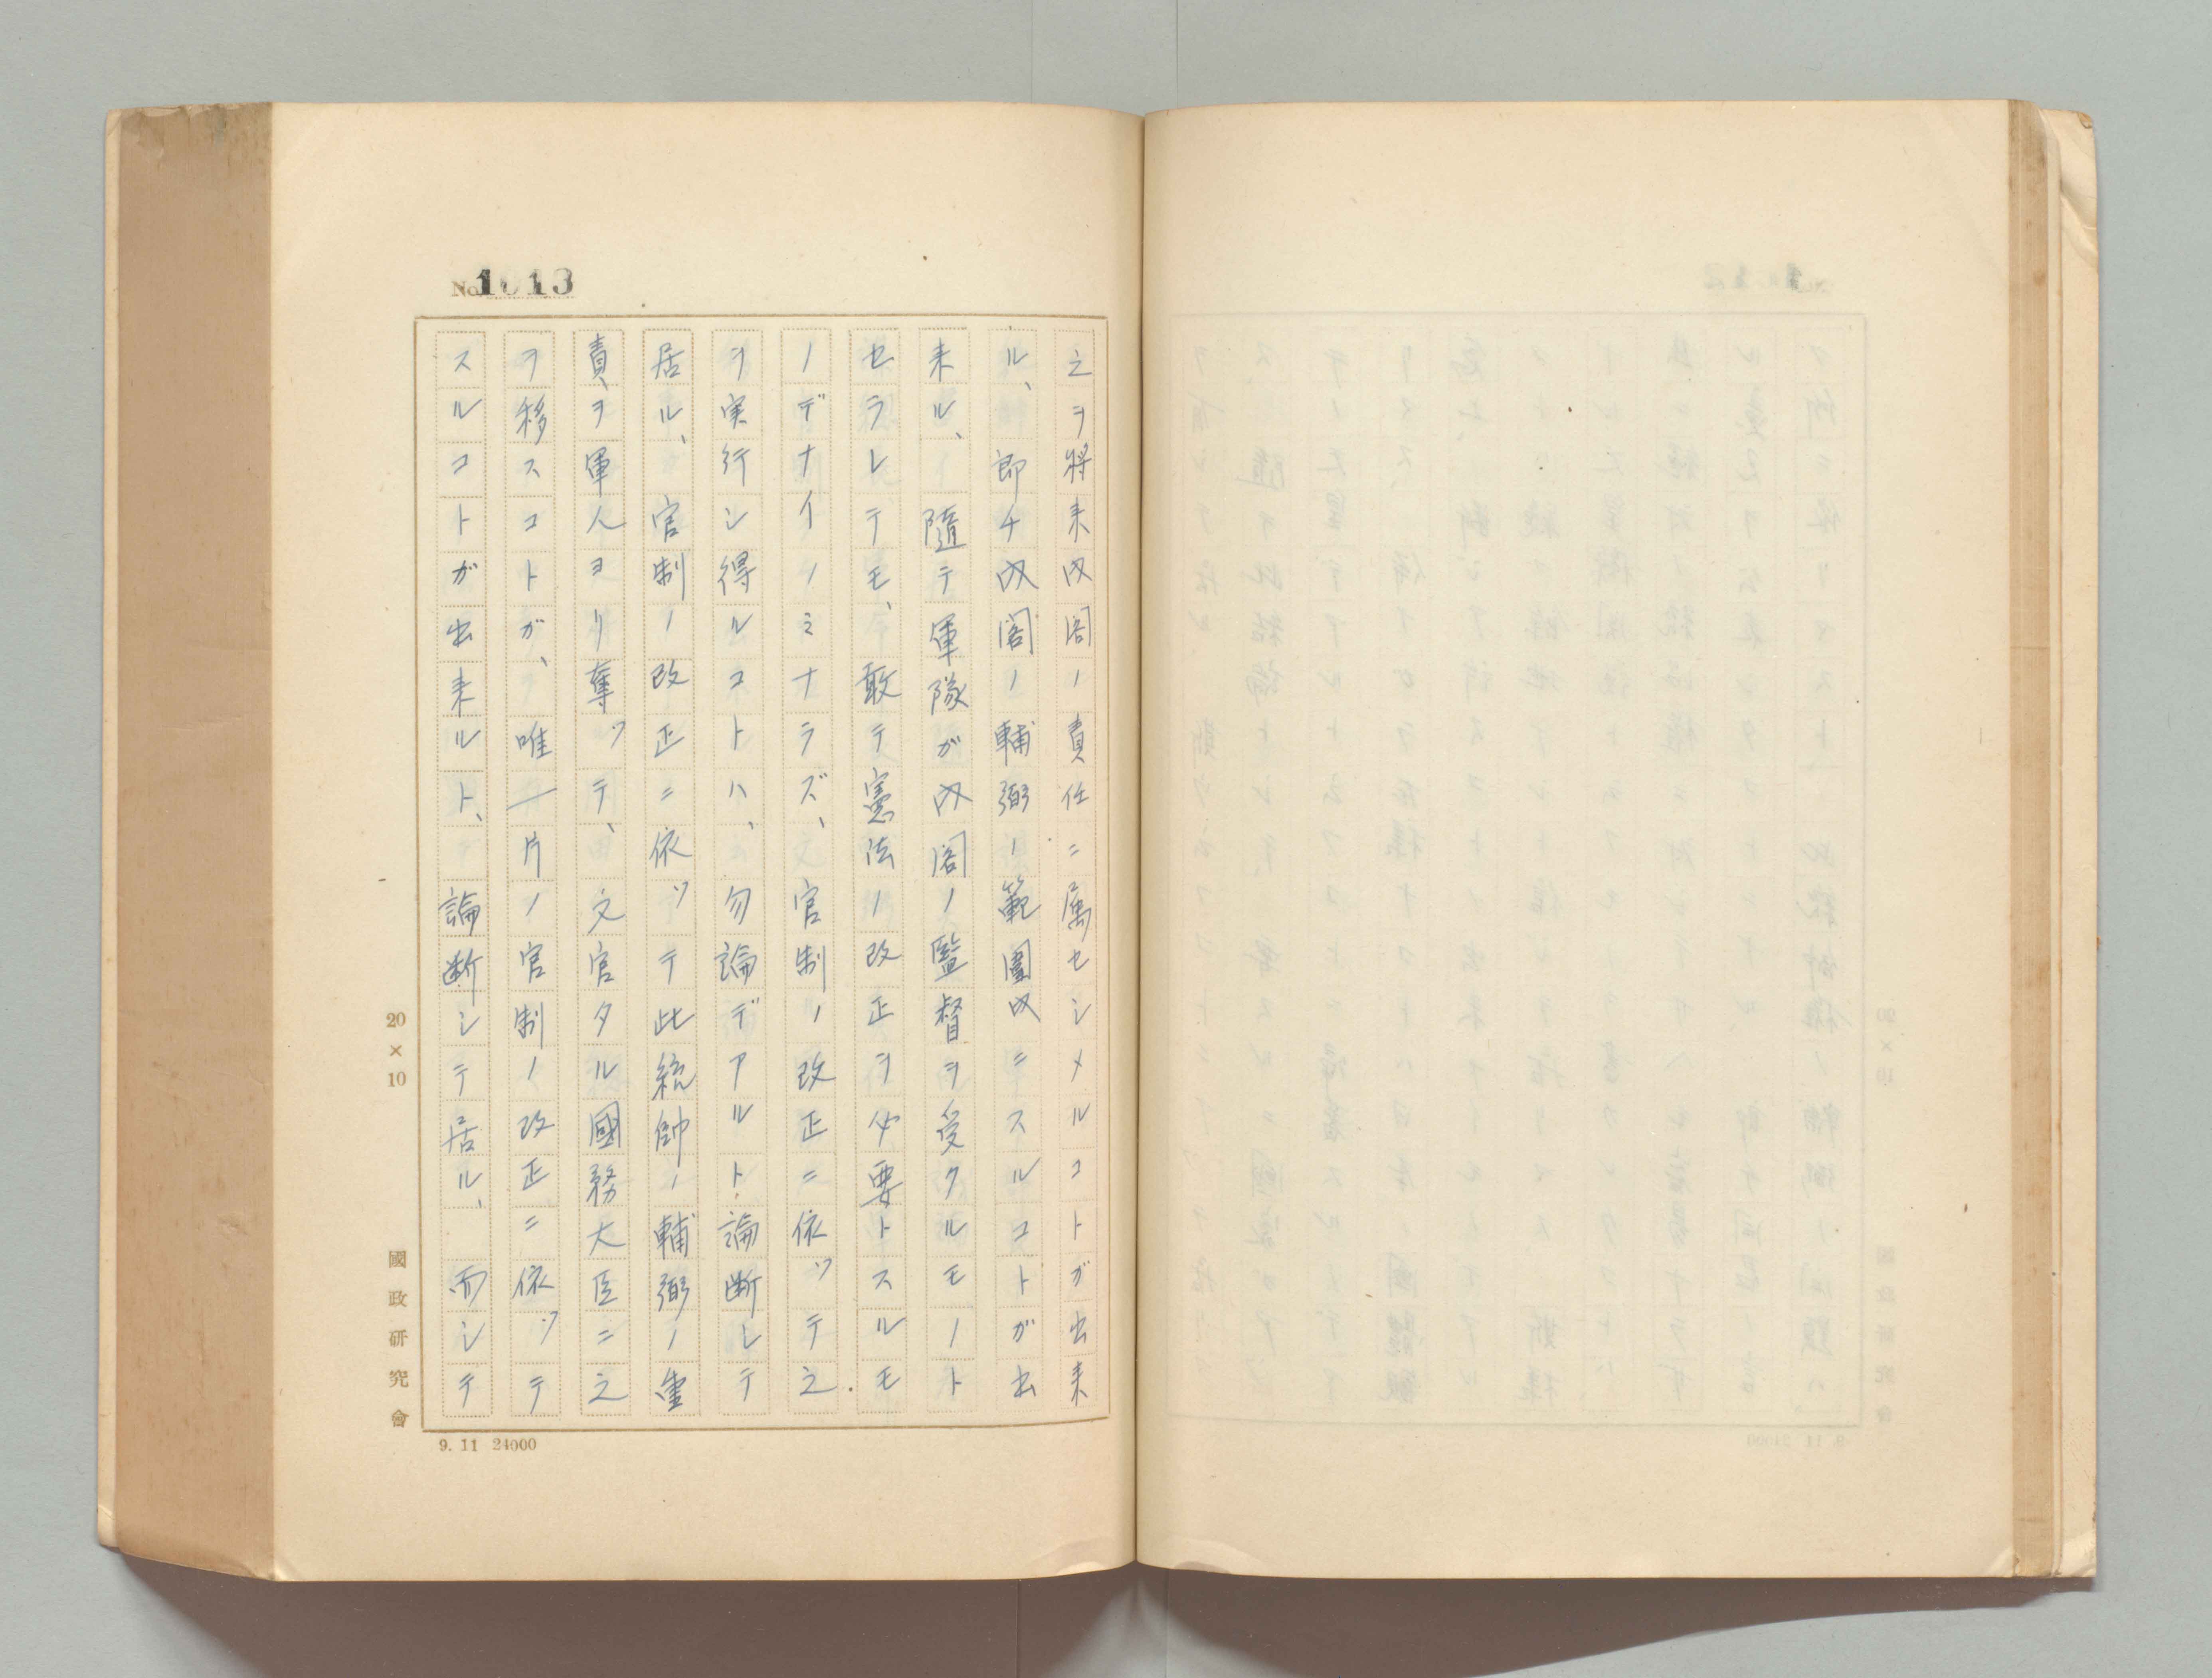 No. 1013
之ヲ将来内閣ノ責任ニ属セシメルコトガ出来
ル、即チ内閣ノ輔弼ノ範圍内ニスルコトガ出
来ル、隨テ軍隊ガ内閣ノ監督ヲ受クルモノト
セラレテモ、敢テ憲法ノ改正ヲ必要トスルモ
ノデナイノミナラズ、官制ノ改正ニ依ツテ之
ヲ実行シ得ルコトハ、勿論デアルト論断シテ
居ル、官制ノ改正ニ依ツテ此統帥ノ輔弼ノ重
責、ヲ軍人ヨリ奪ツテ、文官タル國務大臣ニ之
ヲ移スコトガ、唯一片ノ官制ノ改正ニ依ツテ
スルコトガ出来ルト、論断シテ居ル、而シテ
20×10
國政研究會
9. 11 24000